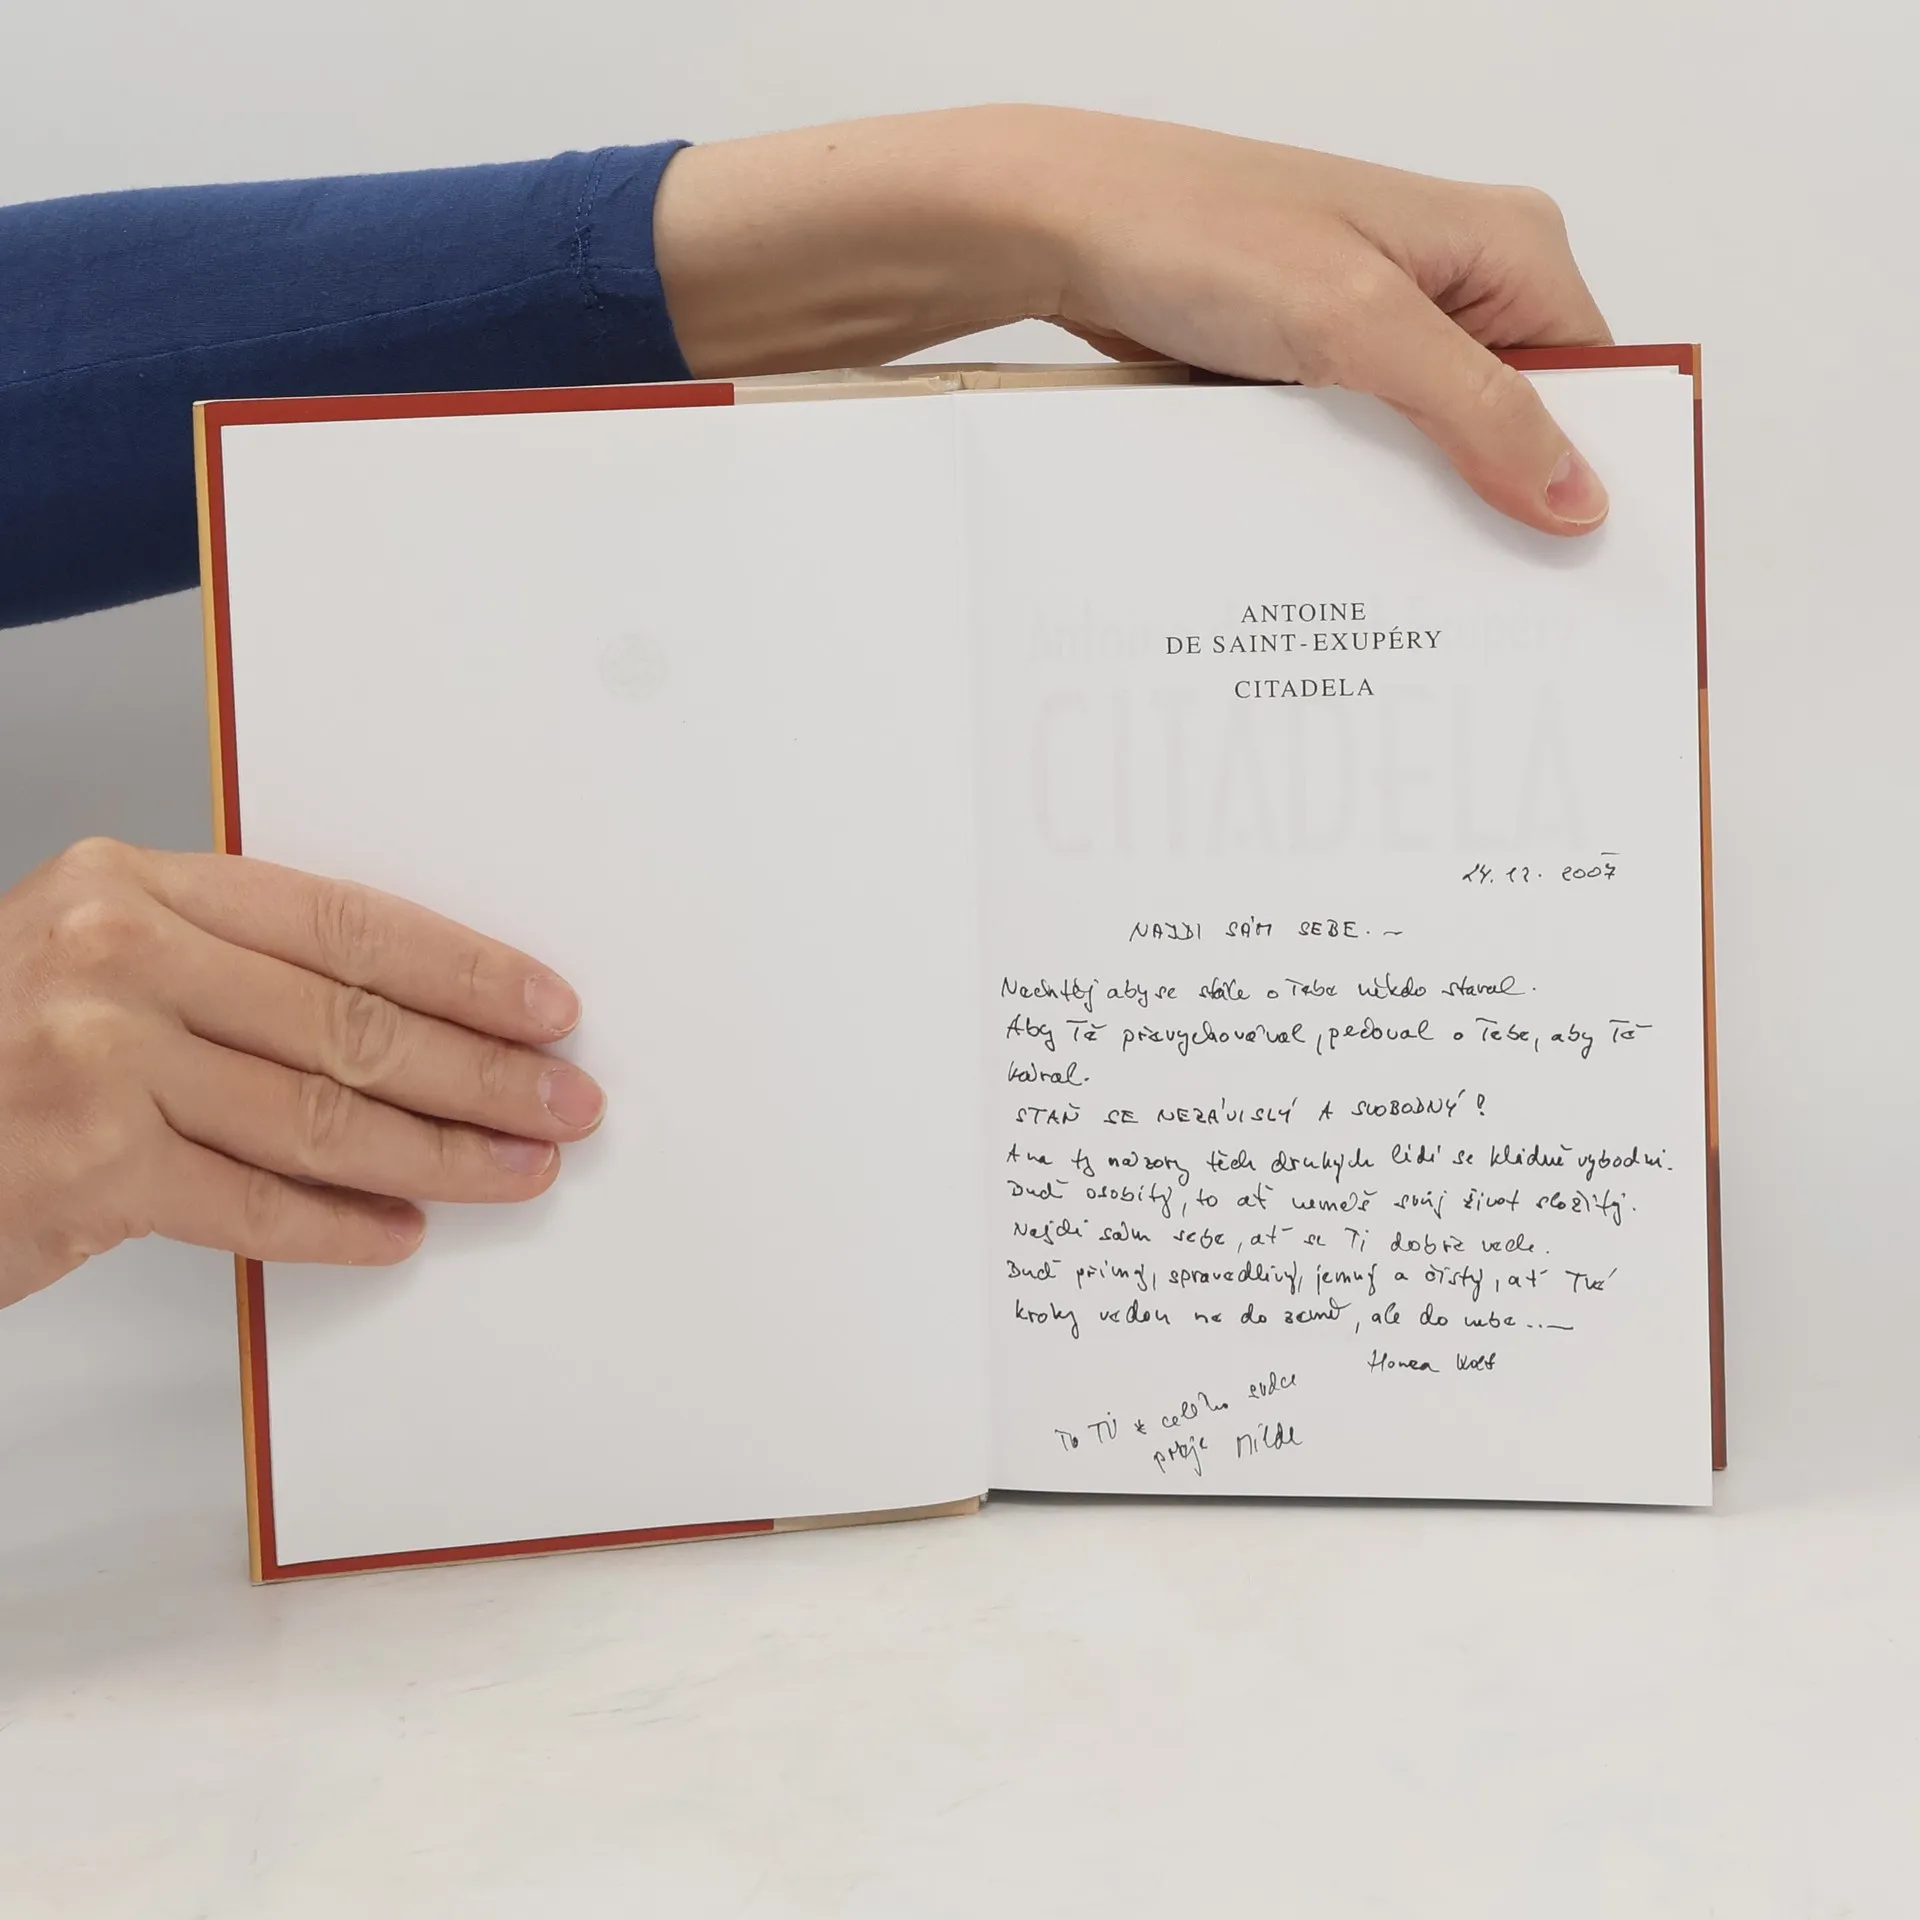 ANTOINE
DE SAINT-EXUPÉRY
CITADELA
24. 12. 2007
NAJDI SÁM SEBE. ~
Nechtěj aby se stále o Tebe někdo staral.
Aby Tě převychovával, pečoval o Tebe, aby Tě
káral.
STAŇ SE NEZÁVISLÝ A SVOBODNÝ!
A na ty názory těch druhých lidí se klidně vybodni.
Buď osobitý, to ať nemáš svůj život složitý.
Najdi sám sebe, ať se Ti dobře vede.
Buď přímý, spravedlivý, jemný a čistý, ať Tvé
kroky vedou ne do země, ale do nebe..—
Honza
To TI z celého srdce
přeje Milda